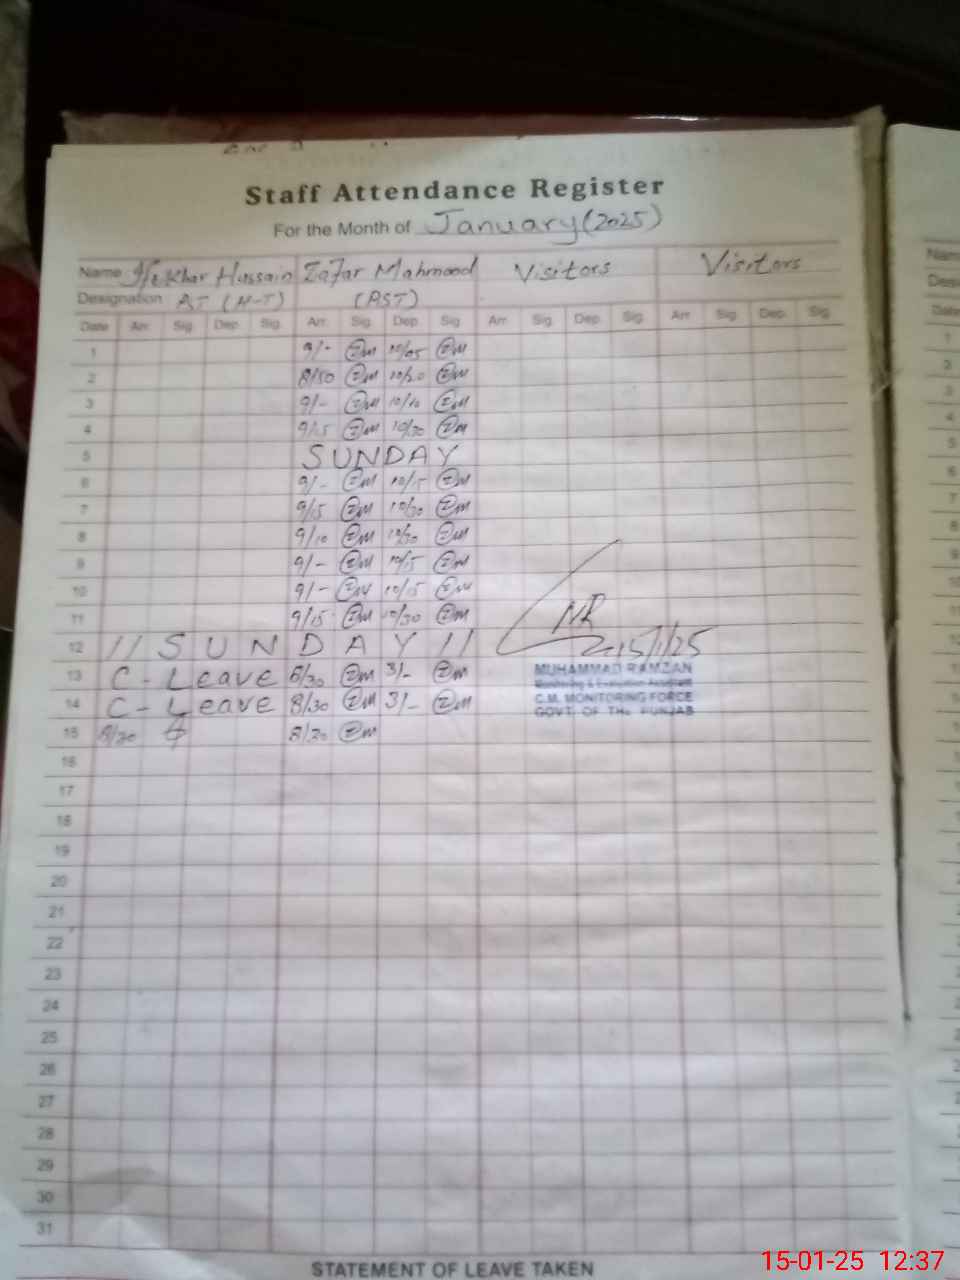 Staff Attendance Register
For the Month of January (2025)
Name Iftekhar Hussain Zafar Mahmood Visitors Visitors
Designation PST (H-T) (PST)
Date Arr. Sig. Dep. Sig. Arr. Sig. Dep. Sig. Arr. Sig. Dep. Sig. Arr. Sig. Dep. Sig.
1 9/- ZM 10/05 ZM
2 8/50 ZM 10/20 ZM
3 9/- ZM 10/10 ZM
4 9/15 ZM 10/30 ZM
5 SUNDAY
6 9/- ZM 10/15 ZM
7 9/15 ZM 10/30 ZM
8 9/10 ZM 10/30 ZM
9 9/- ZM 10/15 ZM
10 9/- ZM 10/15 ZM
11 9/15 ZM 10/30 ZM
12 // SUNDAY //
MR
15/1/25
13 C-Leave 8/30 ZM 3/- ZM
14 C-Leave 8/30 ZM 3/- ZM
MUHAMMAD RAMZAN
Monitoring & Evaluation Assistant
C.M. MONITORING FORCE
GOVT. OF THE PUNJAB
15 8/30 8/30 ZM
16
17
18
19
20
21
22
23
24
25
26
27
28
29
30
31
STATEMENT OF LEAVE TAKEN
15-01-25 12:37